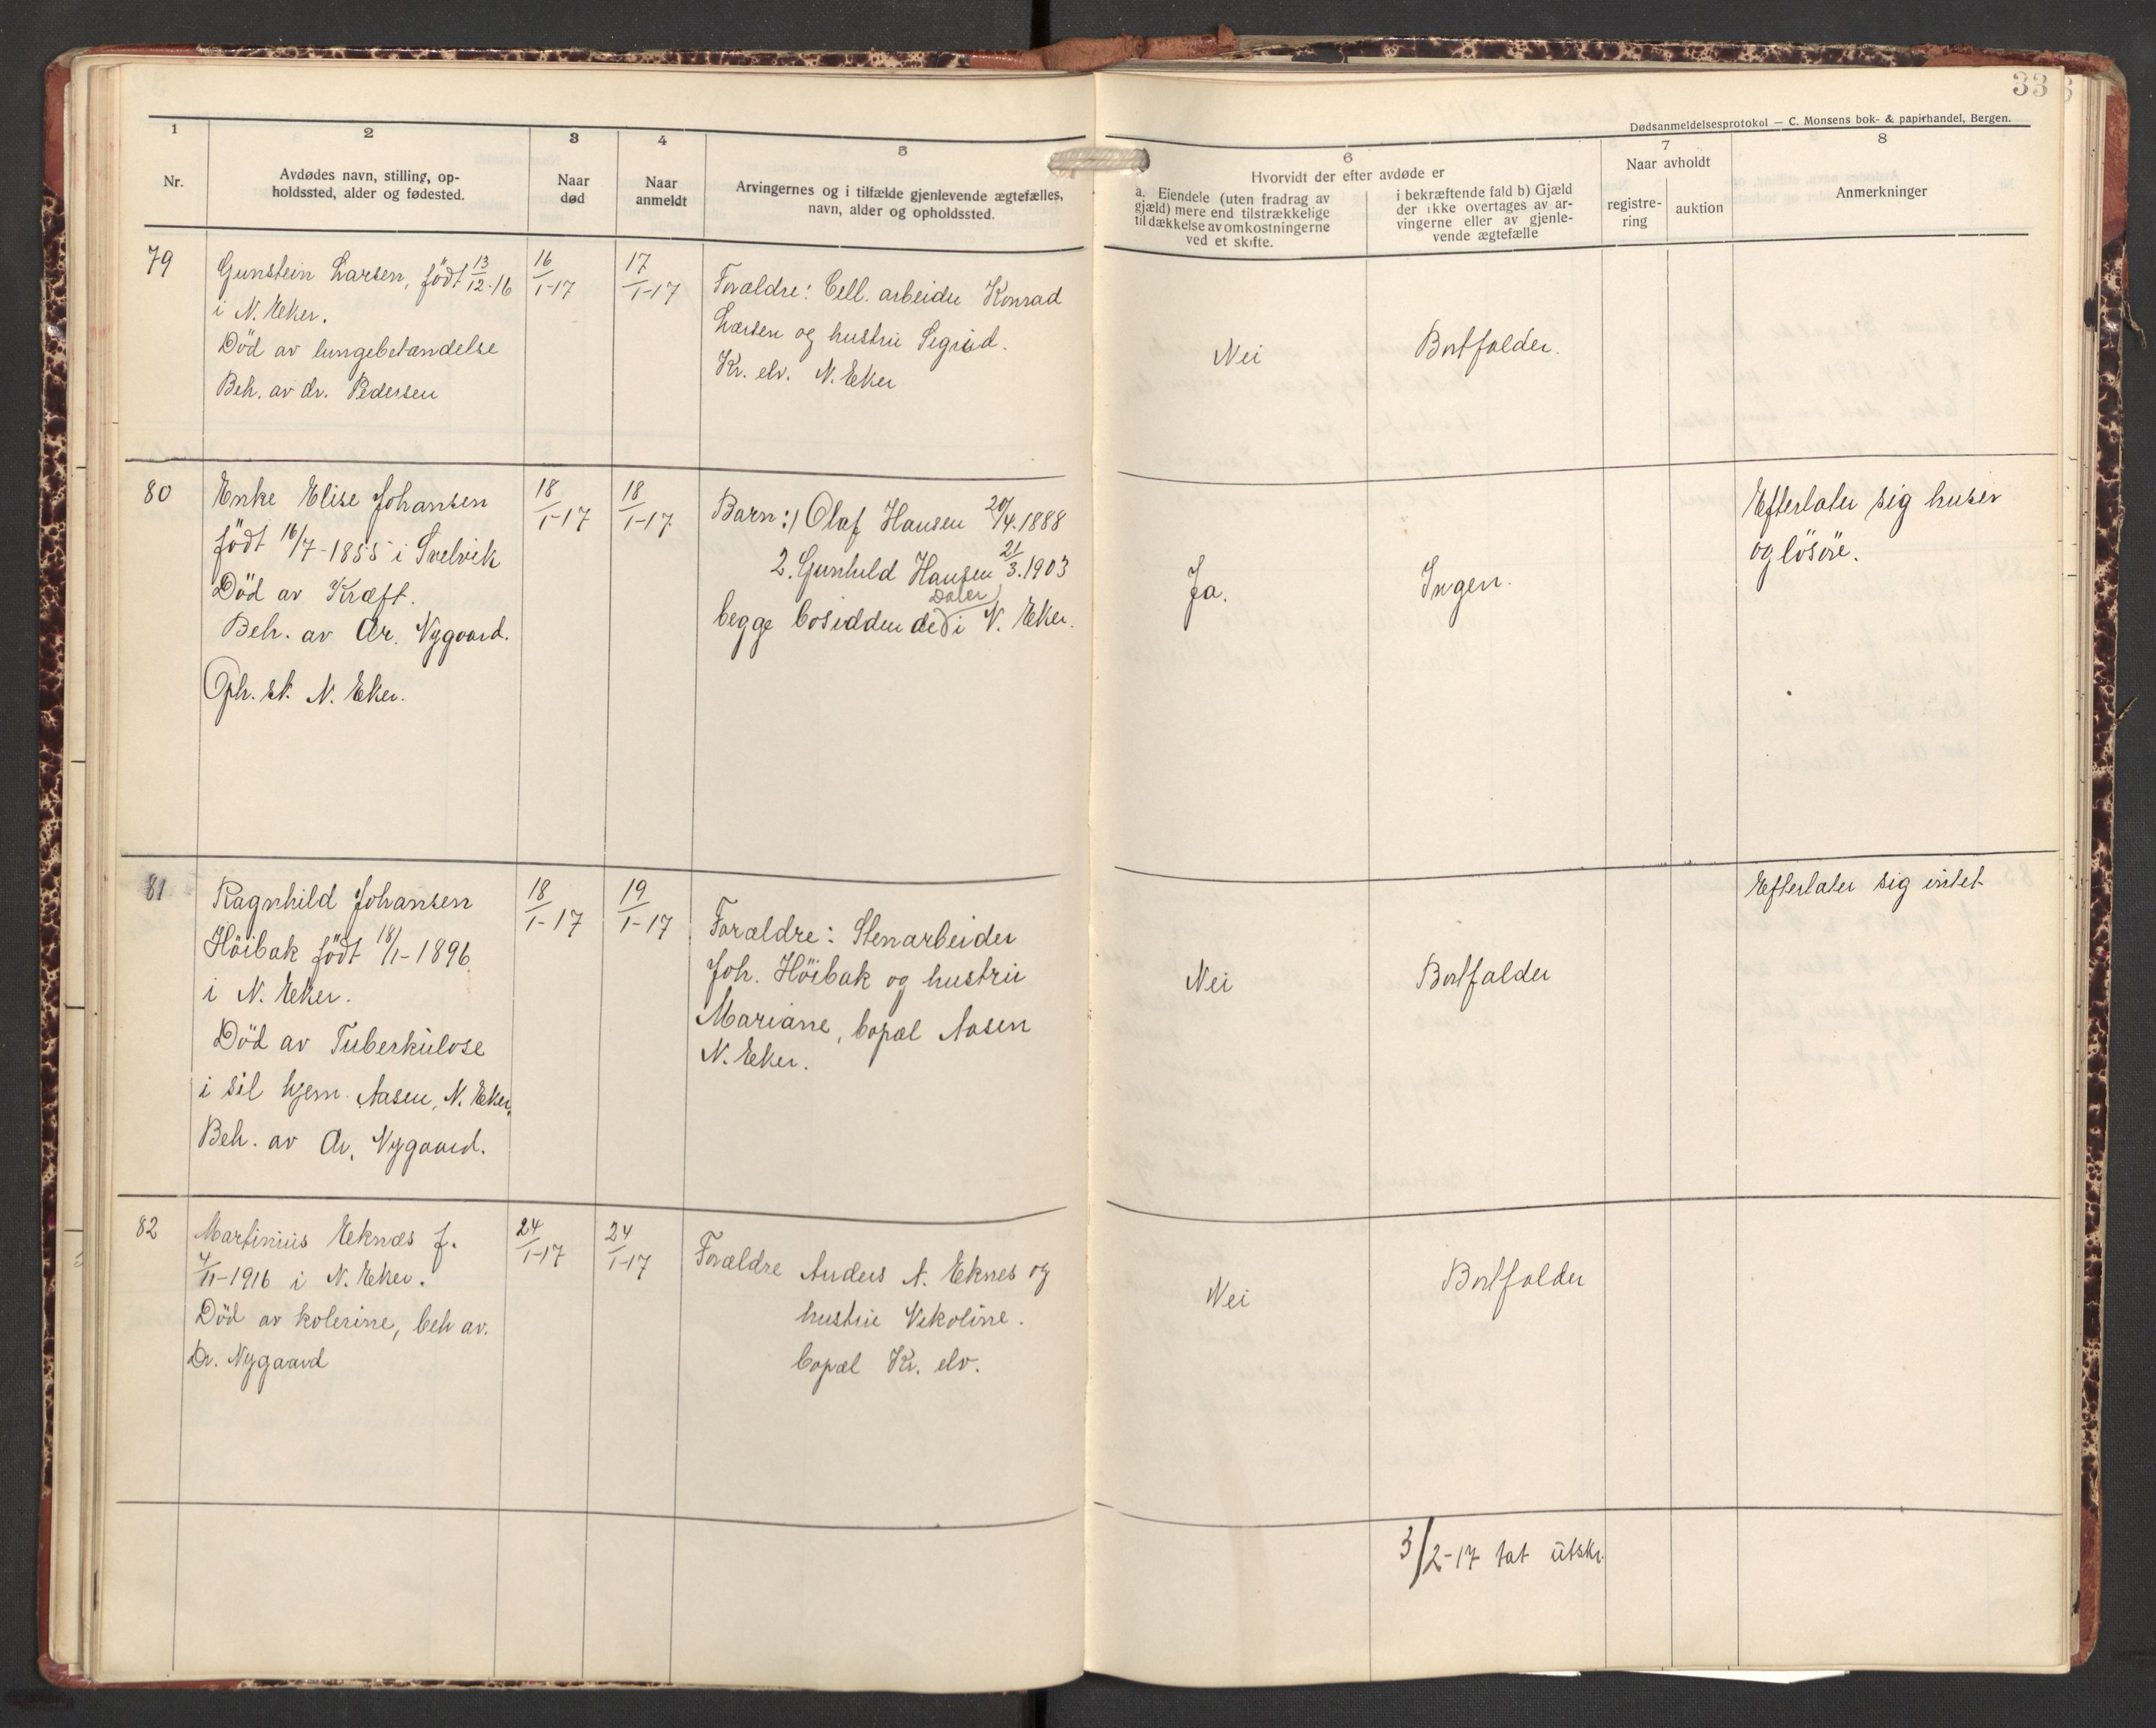 33
Dødsanmeldelsesprotokol — C. Monsens bok- & papirhandel, Bergen.
1
2
3
4
5
6
7
8
Nr.
Avdødes navn, stilling, op-
holdssted, alder og fødested.
Naar
død
Naar
anmeldt
Arvingernes og i tilfælde gjenlevende ægtefælles,
navn, alder og opholdssted.
Hvorvidt der efter avdøde er
a. Eiendele (uten fradrag av
gjæld) mere end tilstrækkelige
til dækkelse av omkostningerne
ved et skifte.
i bekræftende fald b) Gjæld
der ikke overtages av ar-
vingerne eller av gjenle-
vende ægtefælle
Naar avholdt
registre-
ring
auktion
Anmerkninger
79
Gunstein Larsen, födt 13/12-16
i N. Eker.
Död av lungebetændelse
Beh. av dr. Pedersen
16/1-17
17/1-17
Forældre: Cell. arbeider Konrad
Larsen og hustru Sigrid.
Kr. elv. N. Eker
Nei
Bortfalder.
80
Enke Elise Johansen
födt 16/7-1855 i Svelvik
Död av Kræft.
Beh. av Dr. Nygaard.
Oph. st. N. Eker.
18/1-17
18/1-17
Barn: 1) Olaf Hansen 20/4.1888
2. Gunhild Hansen 21/3.1903
Daler
begge bosiddende i N. Eker.
Ja.
Ingen.
Efterlater sig huser
og lösöre.
81
Ragnhild Johansen
Höibak födt 18/1-1896
i N. Eker.
Död av Tuberkulose
i sit hjem Aasen, N. Eker,
Beh. av Dr. Nygaard.
18/1-17
19/1-17
Forældre: Stenarbeider
Joh. Höibak og hustru
Mariane, bopæl Aasen
N. Eker.
Nei
Bortfalder
Efterlater sig intet
82
Martinius Eeknæs f.
4/11-1916 i N. Eker.
Död av kolerine, beh av.
Dr. Nygaard
24/1-17
24/1-17
Forældre Anders A. Eknes og
hustru Nikoline.
bopæl Kr. elv.
Nei
Bortfalder
3/2-17 tat utskr.